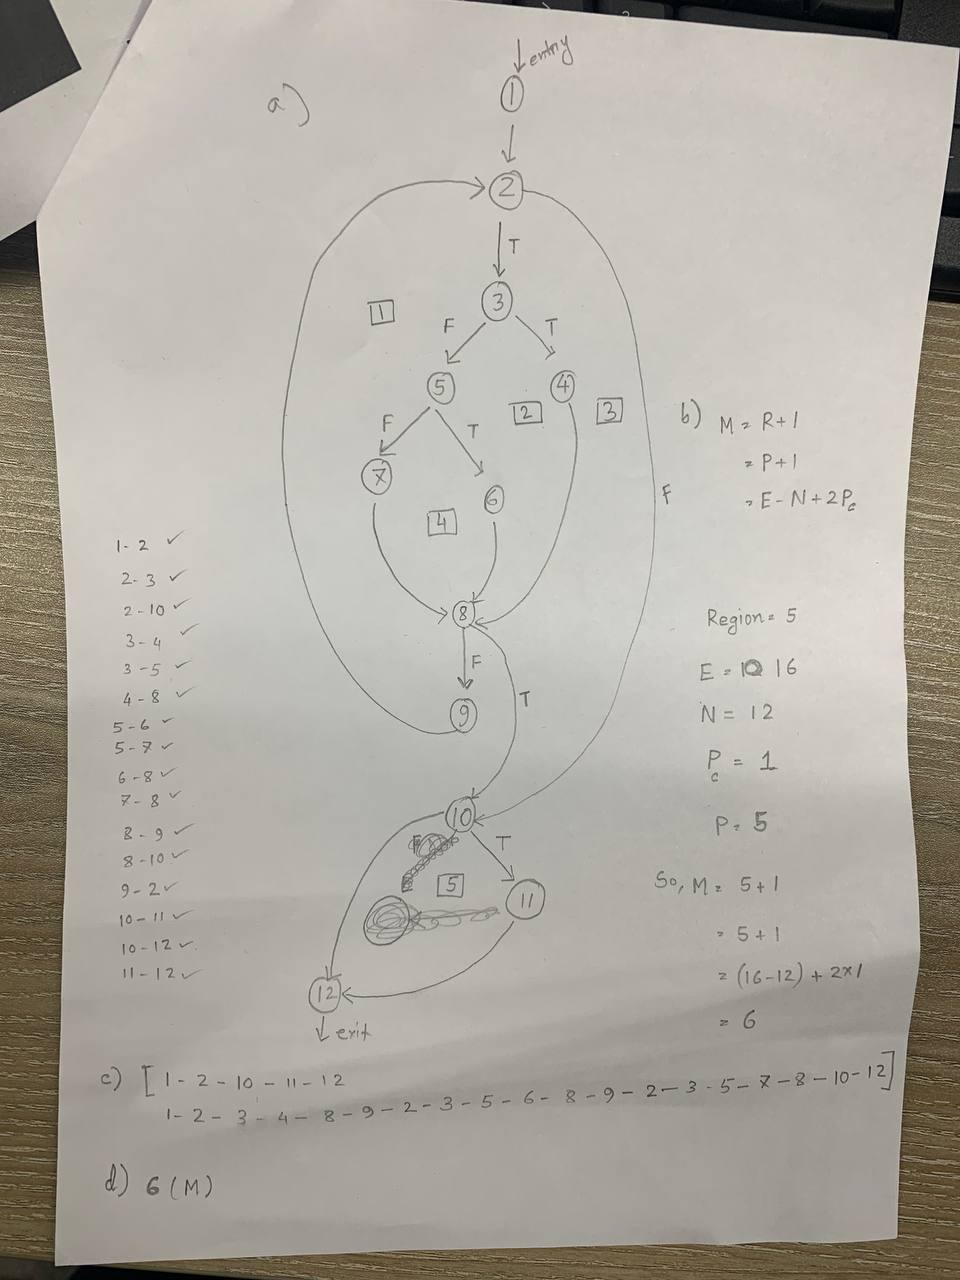 entry
a)
1
2
T
3
1
F
T
5
4
2
3
F
T
7
6
F
4
8
F
T
9
10
T
5
11
12
exit
1-2 ✓
2-3 ✓
2-10 ✓
3-4 ✓
3-5 ✓
4-8 ✓
5-6 ✓
5-7 ✓
6-8 ✓
7-8 ✓
8-9 ✓
8-10 ✓
9-2 ✓
10-11 ✓
10-12 ✓
11-12 ✓
b) M = R+1
= P+1
= E-N+2Pc
Region = 5
E = 16
N = 12
Pc = 1
P = 5
So, M = 5+1
= 5+1
= (16-12) + 2×1
= 6
c) [1-2-10-11-12
1-2-3-4-8-9-2-3-5-6-8-9-2-3-5-7-8-10-12]
d) 6 (M)